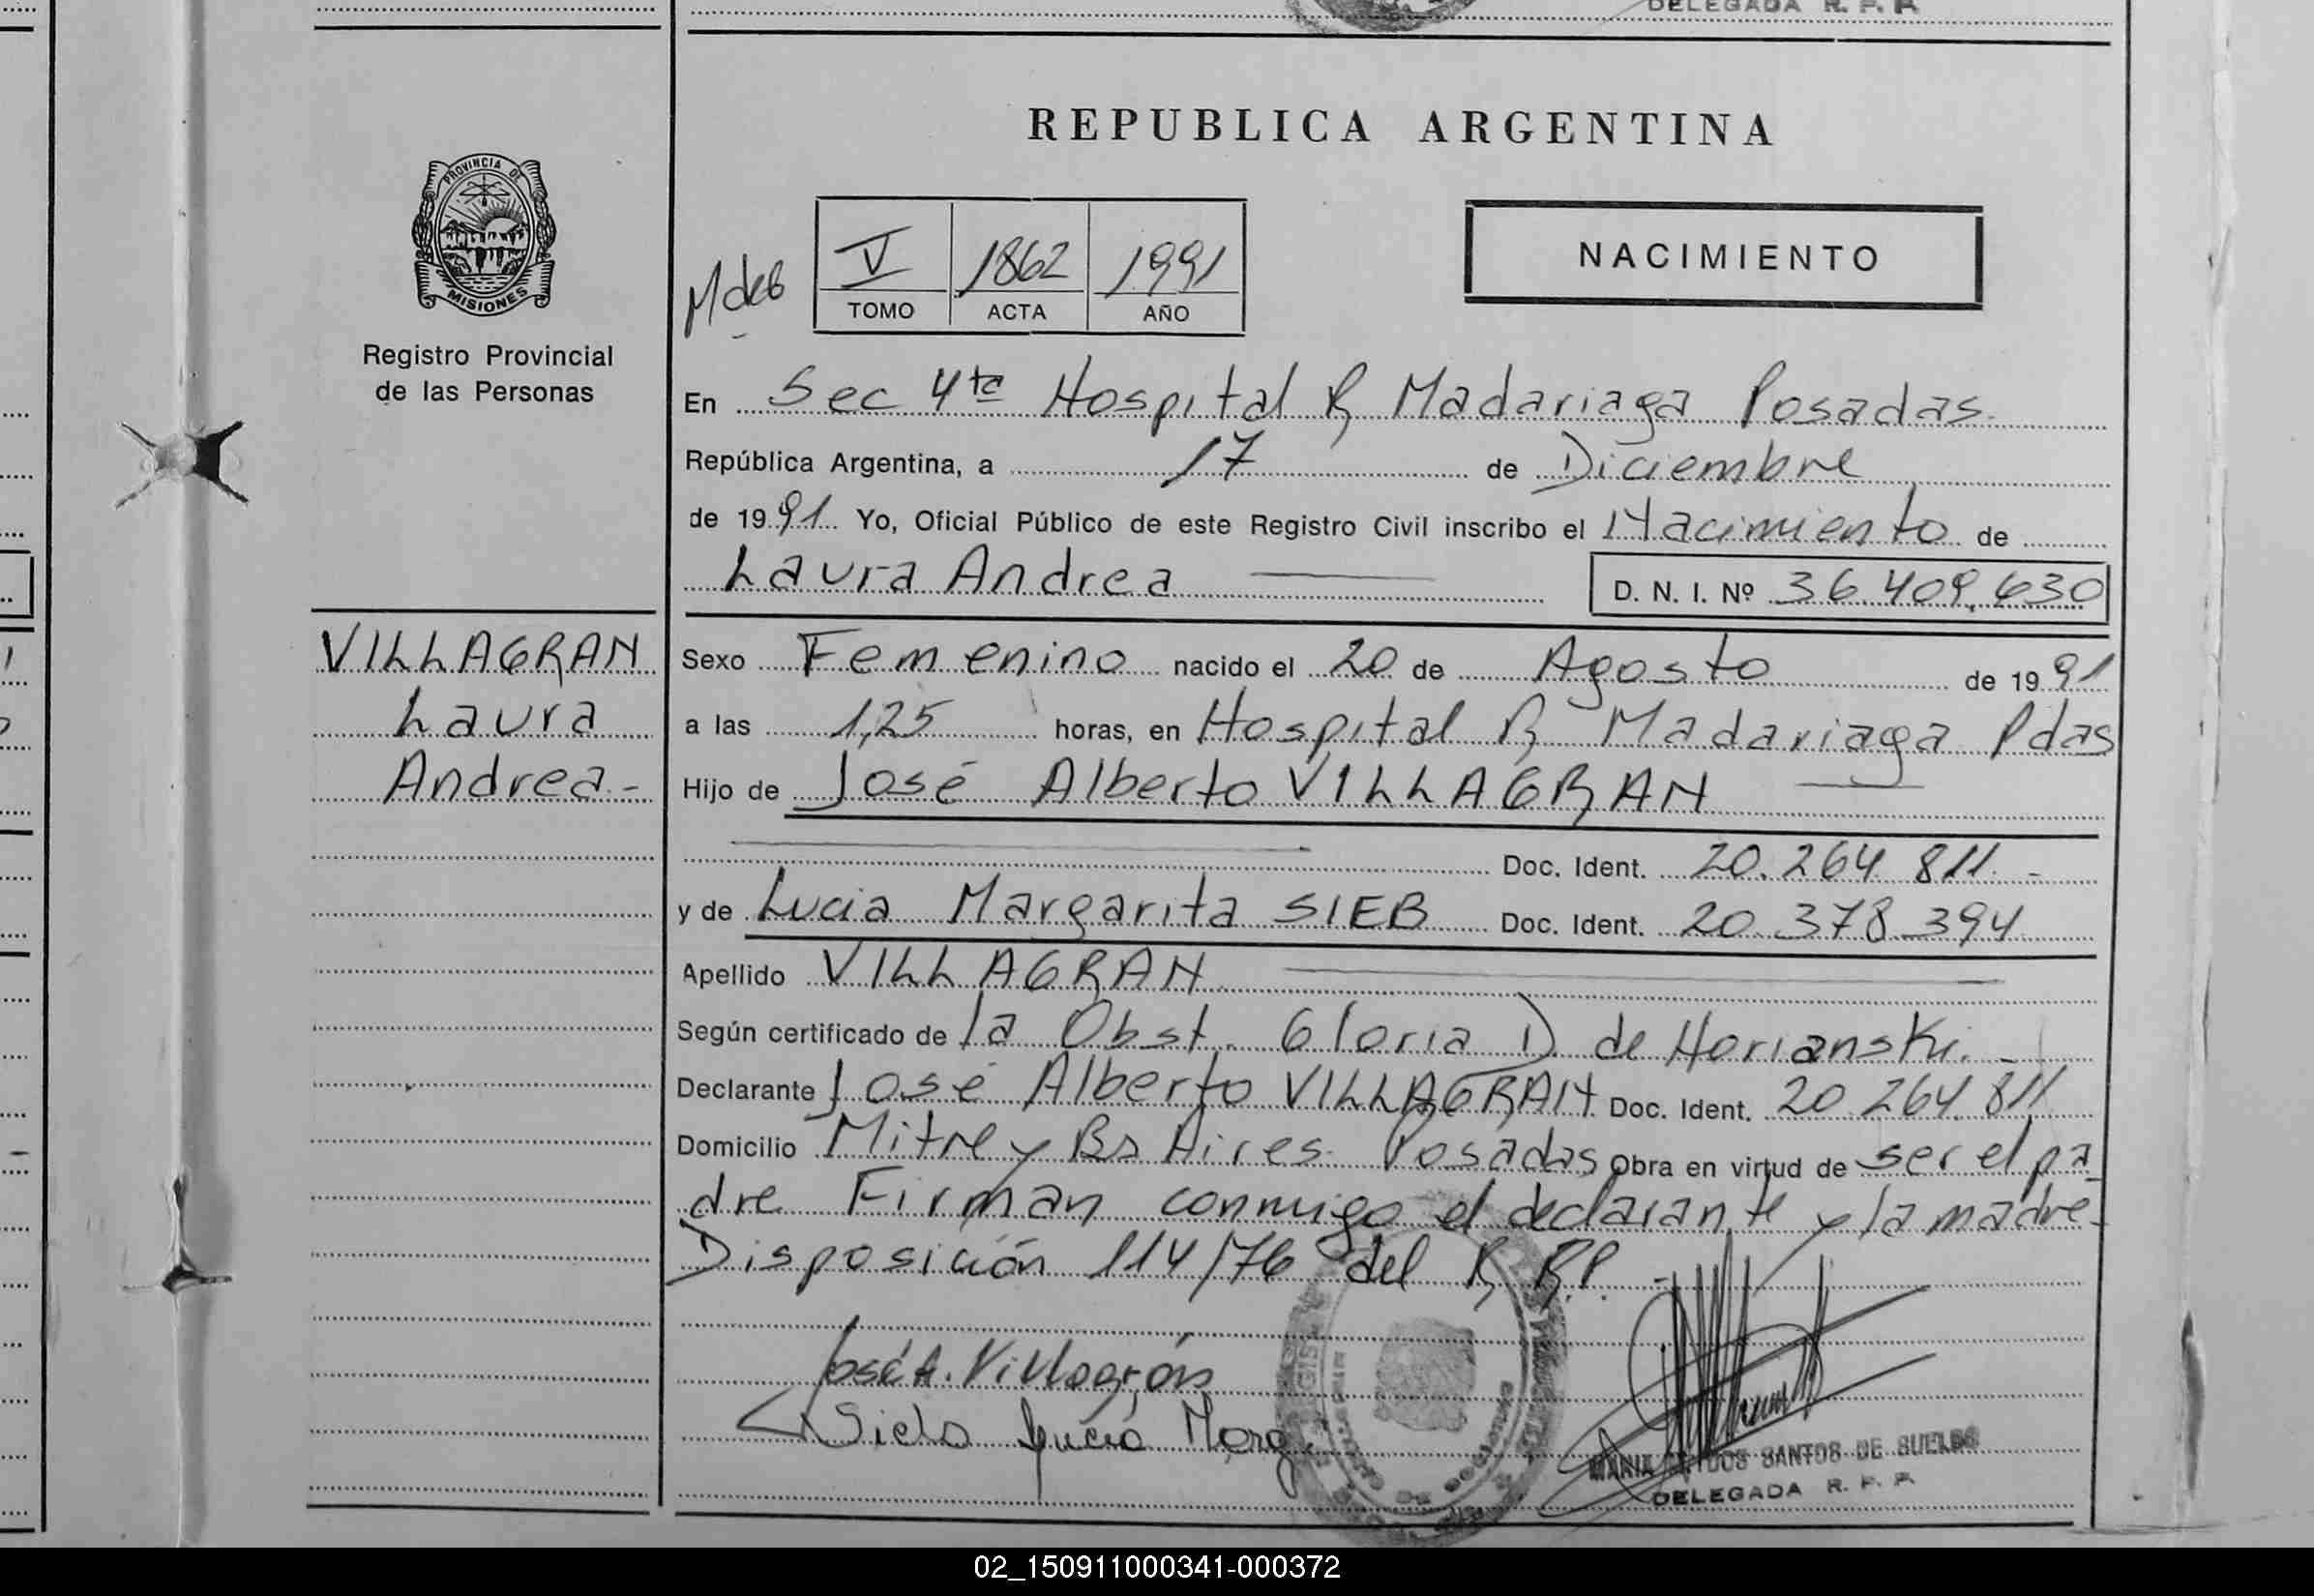 DELEGADA R. P. P.
REPUBLICA ARGENTINA
PROVINCIA DE
MISIONES
Registro Provincial
de las Personas
V 1862 1991
TOMO ACTA AÑO
NACIMIENTO
En Sec 4ta Hospital R Madariaga Posadas
República Argentina, a 17 de Diciembre
de 1991 Yo, Oficial Público de este Registro Civil inscribo el Nacimiento de
Laura Andrea D. N. I. Nº 36.409.630
VILLAGRAN
Laura
Andrea.-
Sexo Femenino nacido el 20 de Agosto de 1991
a las 1,25 horas, en Hospital R Madariaga Pdas
Hijo de José Alberto VILLAGRAN
Doc. Ident. 20.264 811.-
y de Lucia Margarita SIEB Doc. Ident. 20 378 394
Apellido VILLAGRAN
Según certificado de la Obst. Gloria D de Horianski.-
Declarante José Alberto VILLAGRAN Doc. Ident. 20 264 811
Domicilio Mitre y Bs Aires Posadas Obra en virtud de ser el pa
dre Firman conmigo el declarante y la madre-
Disposición 114/76 del R R.P. -
José A. Villagrán
Lucia Marg
MARIA DOS SANTOS DE
DELEGADA R. P. P.
02_150911000341-000372